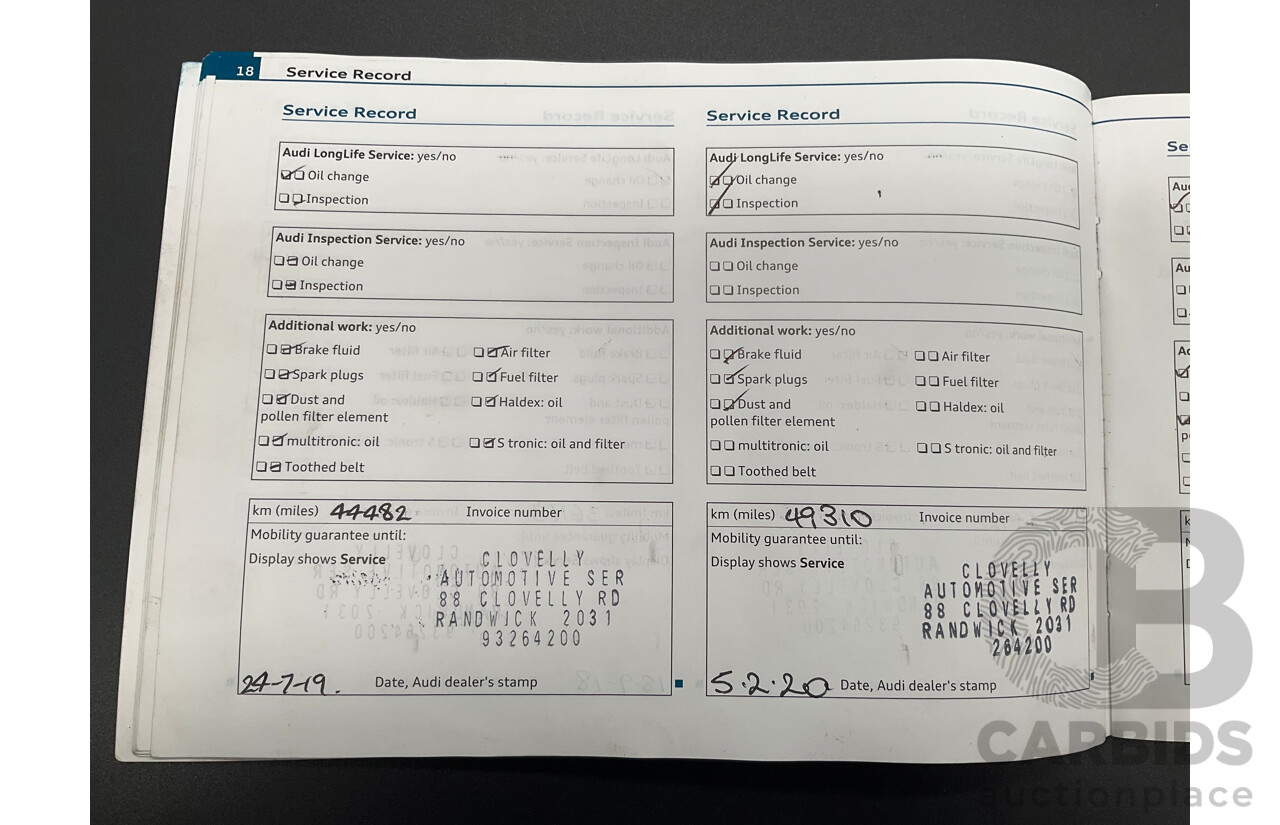 18 Service Record
Service Record
Audi LongLife Service: yes/no
Oil change
Inspection
Audi Inspection Service: yes/no
Oil change
Inspection
Additional work: yes/no
Brake fluid Air filter
Spark plugs Fuel filter
Dust and Haldex: oil
pollen filter element
multitronic: oil S tronic: oil and filter
Toothed belt
km (miles) 44482 Invoice number
Mobility guarantee until:
Display shows Service
CLOVELLY
AUTOMOTIVE SER
88 CLOVELLY RD
RANDWICK 2031
93264200
24-7-19. Date, Audi dealer's stamp
Service Record
Audi LongLife Service: yes/no
Oil change
Inspection
Audi Inspection Service: yes/no
Oil change
Inspection
Additional work: yes/no
Brake fluid Air filter
Spark plugs Fuel filter
Dust and Haldex: oil
pollen filter element
multitronic: oil S tronic: oil and filter
Toothed belt
km (miles) 49310 Invoice number
Mobility guarantee until:
Display shows Service
CLOVELLY
AUTOMOTIVE SER
88 CLOVELLY RD
RANDWICK 2031
264200
5.2.20 Date, Audi dealer's stamp
CARBIDS
auctionplace